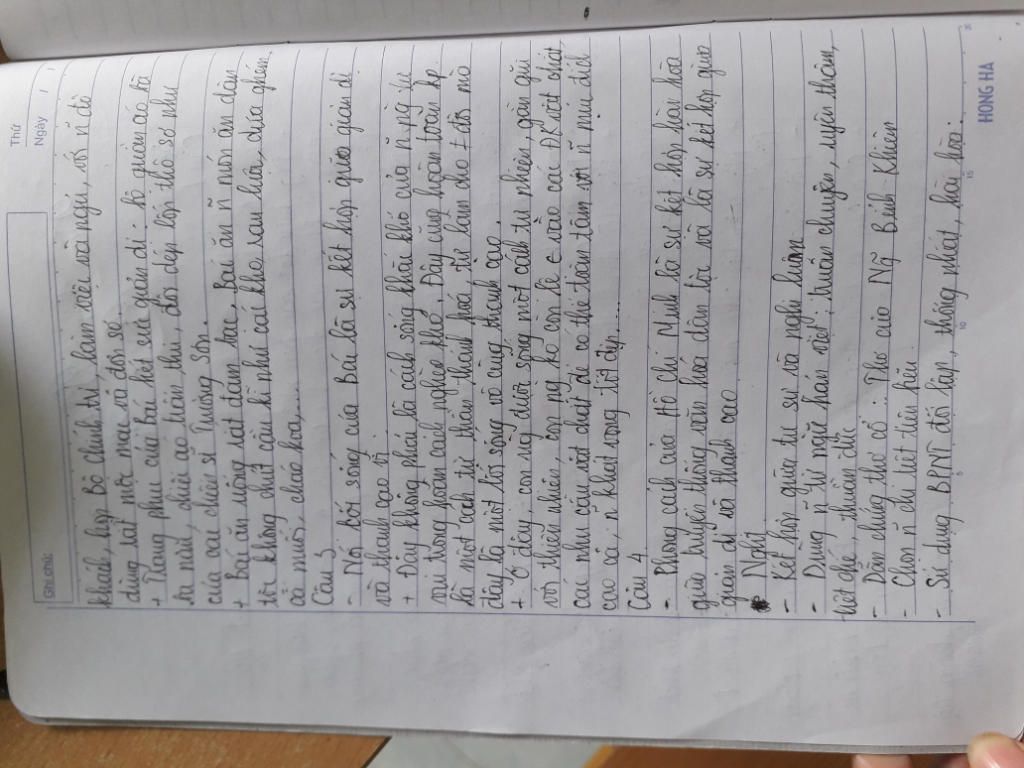 Thứ
Ngày / /
Ghi chú:
khách, họp Bộ chính trị, làm việc và ngủ, với ñ đồ
dùng rất mộc mạc và đơn sơ.
+ Trang phục của Bác hết sức giản dị - bộ quần áo bà
ba nâu, chiếc áo trấn thủ, đôi dép lốp thô sơ như
của các chiến sĩ Trường Sơn.
+ Bác ăn uống rất đạm bạc, Bác ăn ñ món ăn dân
tộc không chút cầu kì như cá kho, rau luộc, dưa ghém,
cà muối, cháo hoa,...
Câu 3
- Nói lối sống của Bác là sự kết hợp giữa giản dị
và thanh cao vì
+ Đây không phải là cách sống khắc khổ của ñ ng tu
vui trong hoàn cảnh nghèo khổ. Đây cũng hoàn toàn kp
là một cách tự thần thánh hoá, tự làm cho ≠ đời mà
đây là một lối sống vô cùng thanh cao.
+ Ở đây, con ng đã sống một cách tự nhiên, gần gũi
với thiên nhiên, con ng ko còn lệ c vào các ĐK vật chất,
các nhu cầu vật chất để có thể toàn tâm với ñ mục đích
cao cả, ñ khát vọng tốt đẹp.....
Câu 4
- Phong cách của Hồ Chí Minh là sự kết hợp hài hoà
giữa truyền thống văn hoá dân tộc và là sự kết hợp giữa
giản dị và thanh cao
Nghệ
- Kết hợp giữa tự sự và nghị luận
- Dùng ñ từ ngữ hán việt: truân chuyên, uyên thâm,
tiết chế, thuần đức
- Dẫn chứng thơ cổ: Thơ của Ng Bỉnh Khiêm
- Chọn ñ chi tiết tiêu biểu
- Sử dụng BPNT đối lập, thống nhất, hài hòa.
HONG HA
5 10 15 20